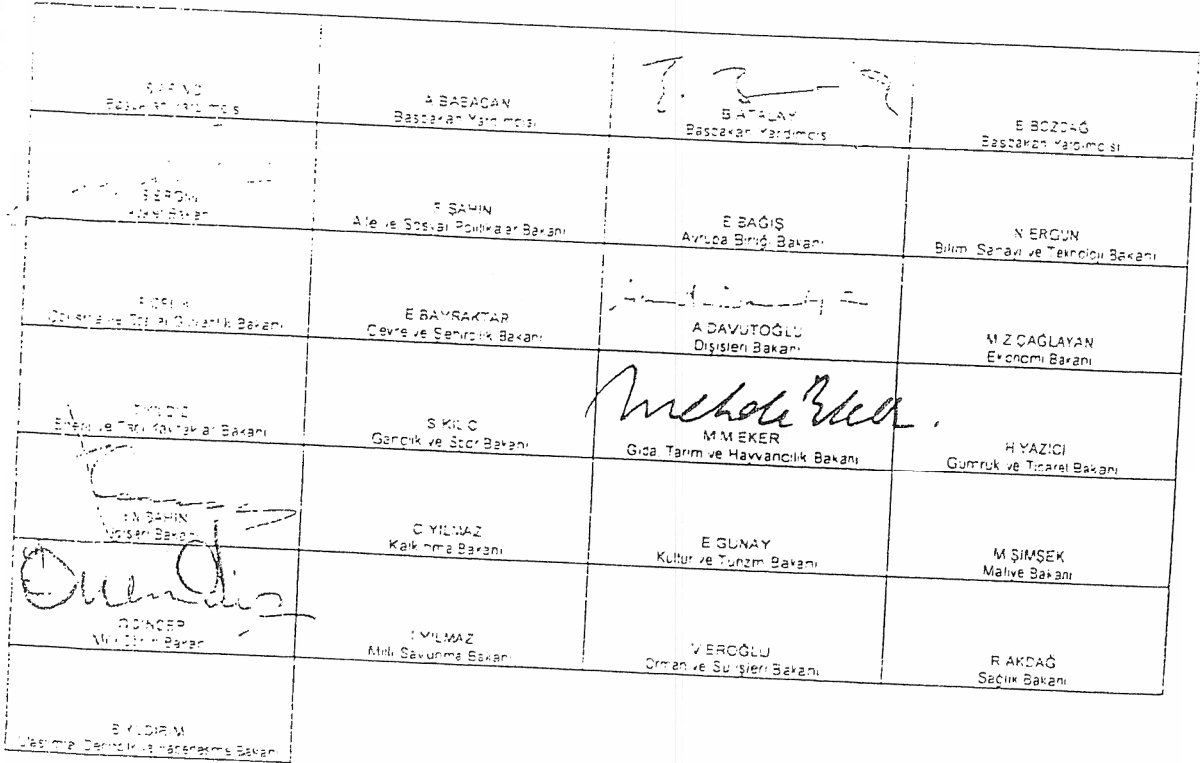 A BABACAN
Başbakan Yardımcısı
B ATALAY
Başbakan Yardımcısı
B BOZDAĞ
Başbakan Yardımcısı
S ERGİN
Bakanı
F ŞAHİN
Aile ve Sosyal Politikalar Bakanı
E BAĞIŞ
Avrupa Birliği Bakanı
N ERGÜN
Bilim Sanayi ve Teknoloji Bakanı
Çalışma ve Sosyal Güvenlik Bakanı
E BAYRAKTAR
Çevre ve Şehircilik Bakanı
A DAVUTOĞLU
Dışişleri Bakanı
M Z ÇAĞLAYAN
Ekonomi Bakanı
T YILDIZ
Enerji ve Tabii Kaynaklar Bakanı
S KILIÇ
Gençlik ve Spor Bakanı
Mehdi Eker
M M EKER
Gıda, Tarım ve Hayvancılık Bakanı
H YAZICI
Gümrük ve Ticaret Bakanı
İ N ŞAHİN
İçişleri Bakanı
C YILMAZ
Kalkınma Bakanı
E GÜNAY
Kültür ve Turizm Bakanı
M ŞİMŞEK
Maliye Bakanı
Ö DİNÇER
Milli Eğitim Bakanı
İ YILMAZ
Milli Savunma Bakanı
V EROĞLU
Orman ve Su İşleri Bakanı
R AKDAĞ
Sağlık Bakanı
B YILDIRIM
Ulaştırma, Denizcilik ve Haberleşme Bakanı